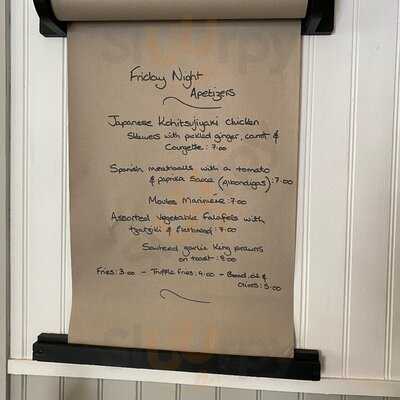 Friday Night
Apetizers
Japanese Kohitsujiyaki chicken
skewers with pickled ginger, carrot &
Courgette: 7.00
Spanish meatballs with a tomato
& paprika sauce (Albondigas): 7.00
Moules Mariniere: 7.00
Assorted Vegetable Falafels with
tzatziki & flatbread: 7.00
Sauteed garlic King prawns
on toast: 8.00
Fries: 3.00 - Truffle fries: 4.00 - Bread, oil &
olives: 5.00